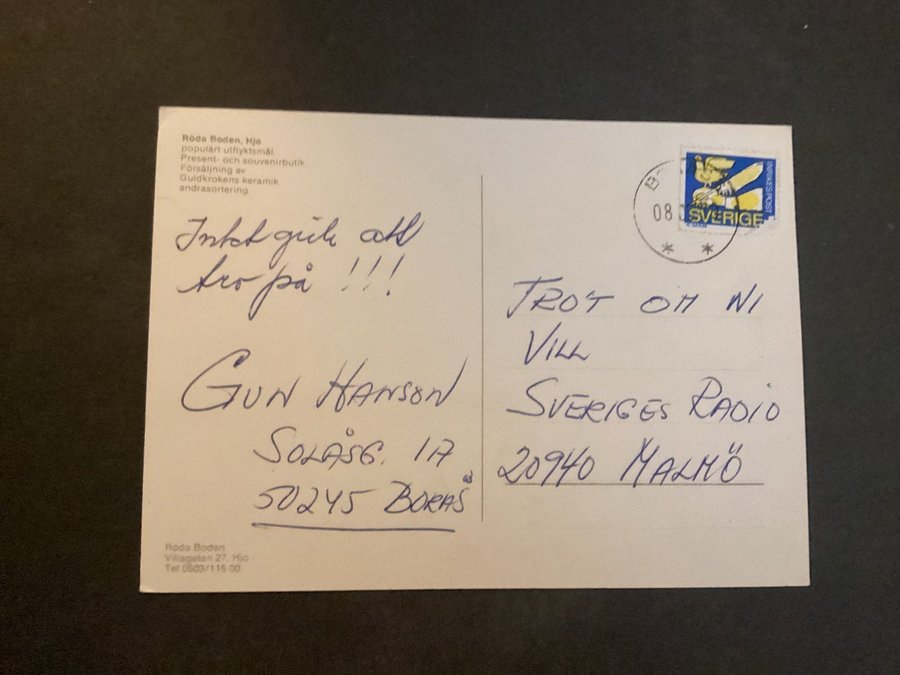 Röda Boden, Hjo
populärt utflyktsmål.
Present- och souvenirbutik.
Försäljning av
Guldkrokens keramik
andrasortering.
att
tro på !!!
GUN HANSON
SOLÅSG. 1A
50245 BORÅS
Röda Boden
Villagatan 27. Hjo
Tel 0503/115 00
08.
INRIKESPOST
SVERIGE
TROT OM NI
VILL
SVERIGES RADIO
20940 MALMÖ